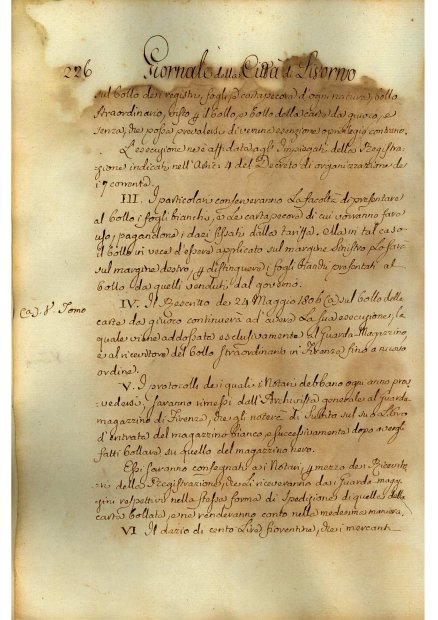 226 Giornale della Città di Livorno
sul bollo dei registri, fogli, e cartapecora d'ogni natura, bollo
straordinario, visto p il bollo, e bollo delle carte da giuoco, e
senza, che possa prevalersi di veruna esenzione o privilegio contrario.
L'esecuzione ne è affidata agl'Impiegati della Registra-
zione indicati nell'Artic: 4 del Decreto di organizzazione de
17 corrente.
III. I particolari conserveranno la facoltà di presentare
al bollo i fogli bianchi, e le carte pecore di cui vorranno fare
uso, pagandone i dazi fissati dalla tariffa. Ma in tal caso
il bollo in vece d'essere applicato sul margine sinistro lo sarà
sul margine destro, p distinguere i fogli bianchi presentati al
bollo da quelli venduti dal governo.
IV. Il Decreto de 24 Maggio 1806 (a) sul bollo delle
(a) 8.° Tomo
carte da giuoco continuerà ad avere la sua esecuzione, la
quale viene addossata esclusivamente al Guarda-Magazzino,
e al ricevitore del bollo straordinario in Firenze fino a nuovo
ordine.
V. I protocolli dei quali i Notari debbano ogni anno prov-
vedersi saranno rimessi dall'Archivista generale al guarda-
magazzino di Firenze, che gli noterà di subito sul suo Libro
d'entrata del magazzino bianco, e successivamente dopo avergli
fatti bollare su quello del magazzino nero.
Essi saranno consegnati ai Notari p mezzo dei Ricevito-
ri della Registrazione, che li riceveranno dai Guarda-magaz-
zini respettivi nella stessa forma di spedizione di quelle della
carta bollata, e ne renderanno conto nella medesima maniera.
VI. Il dazio di cento Lire fiorentine, che i mercanti